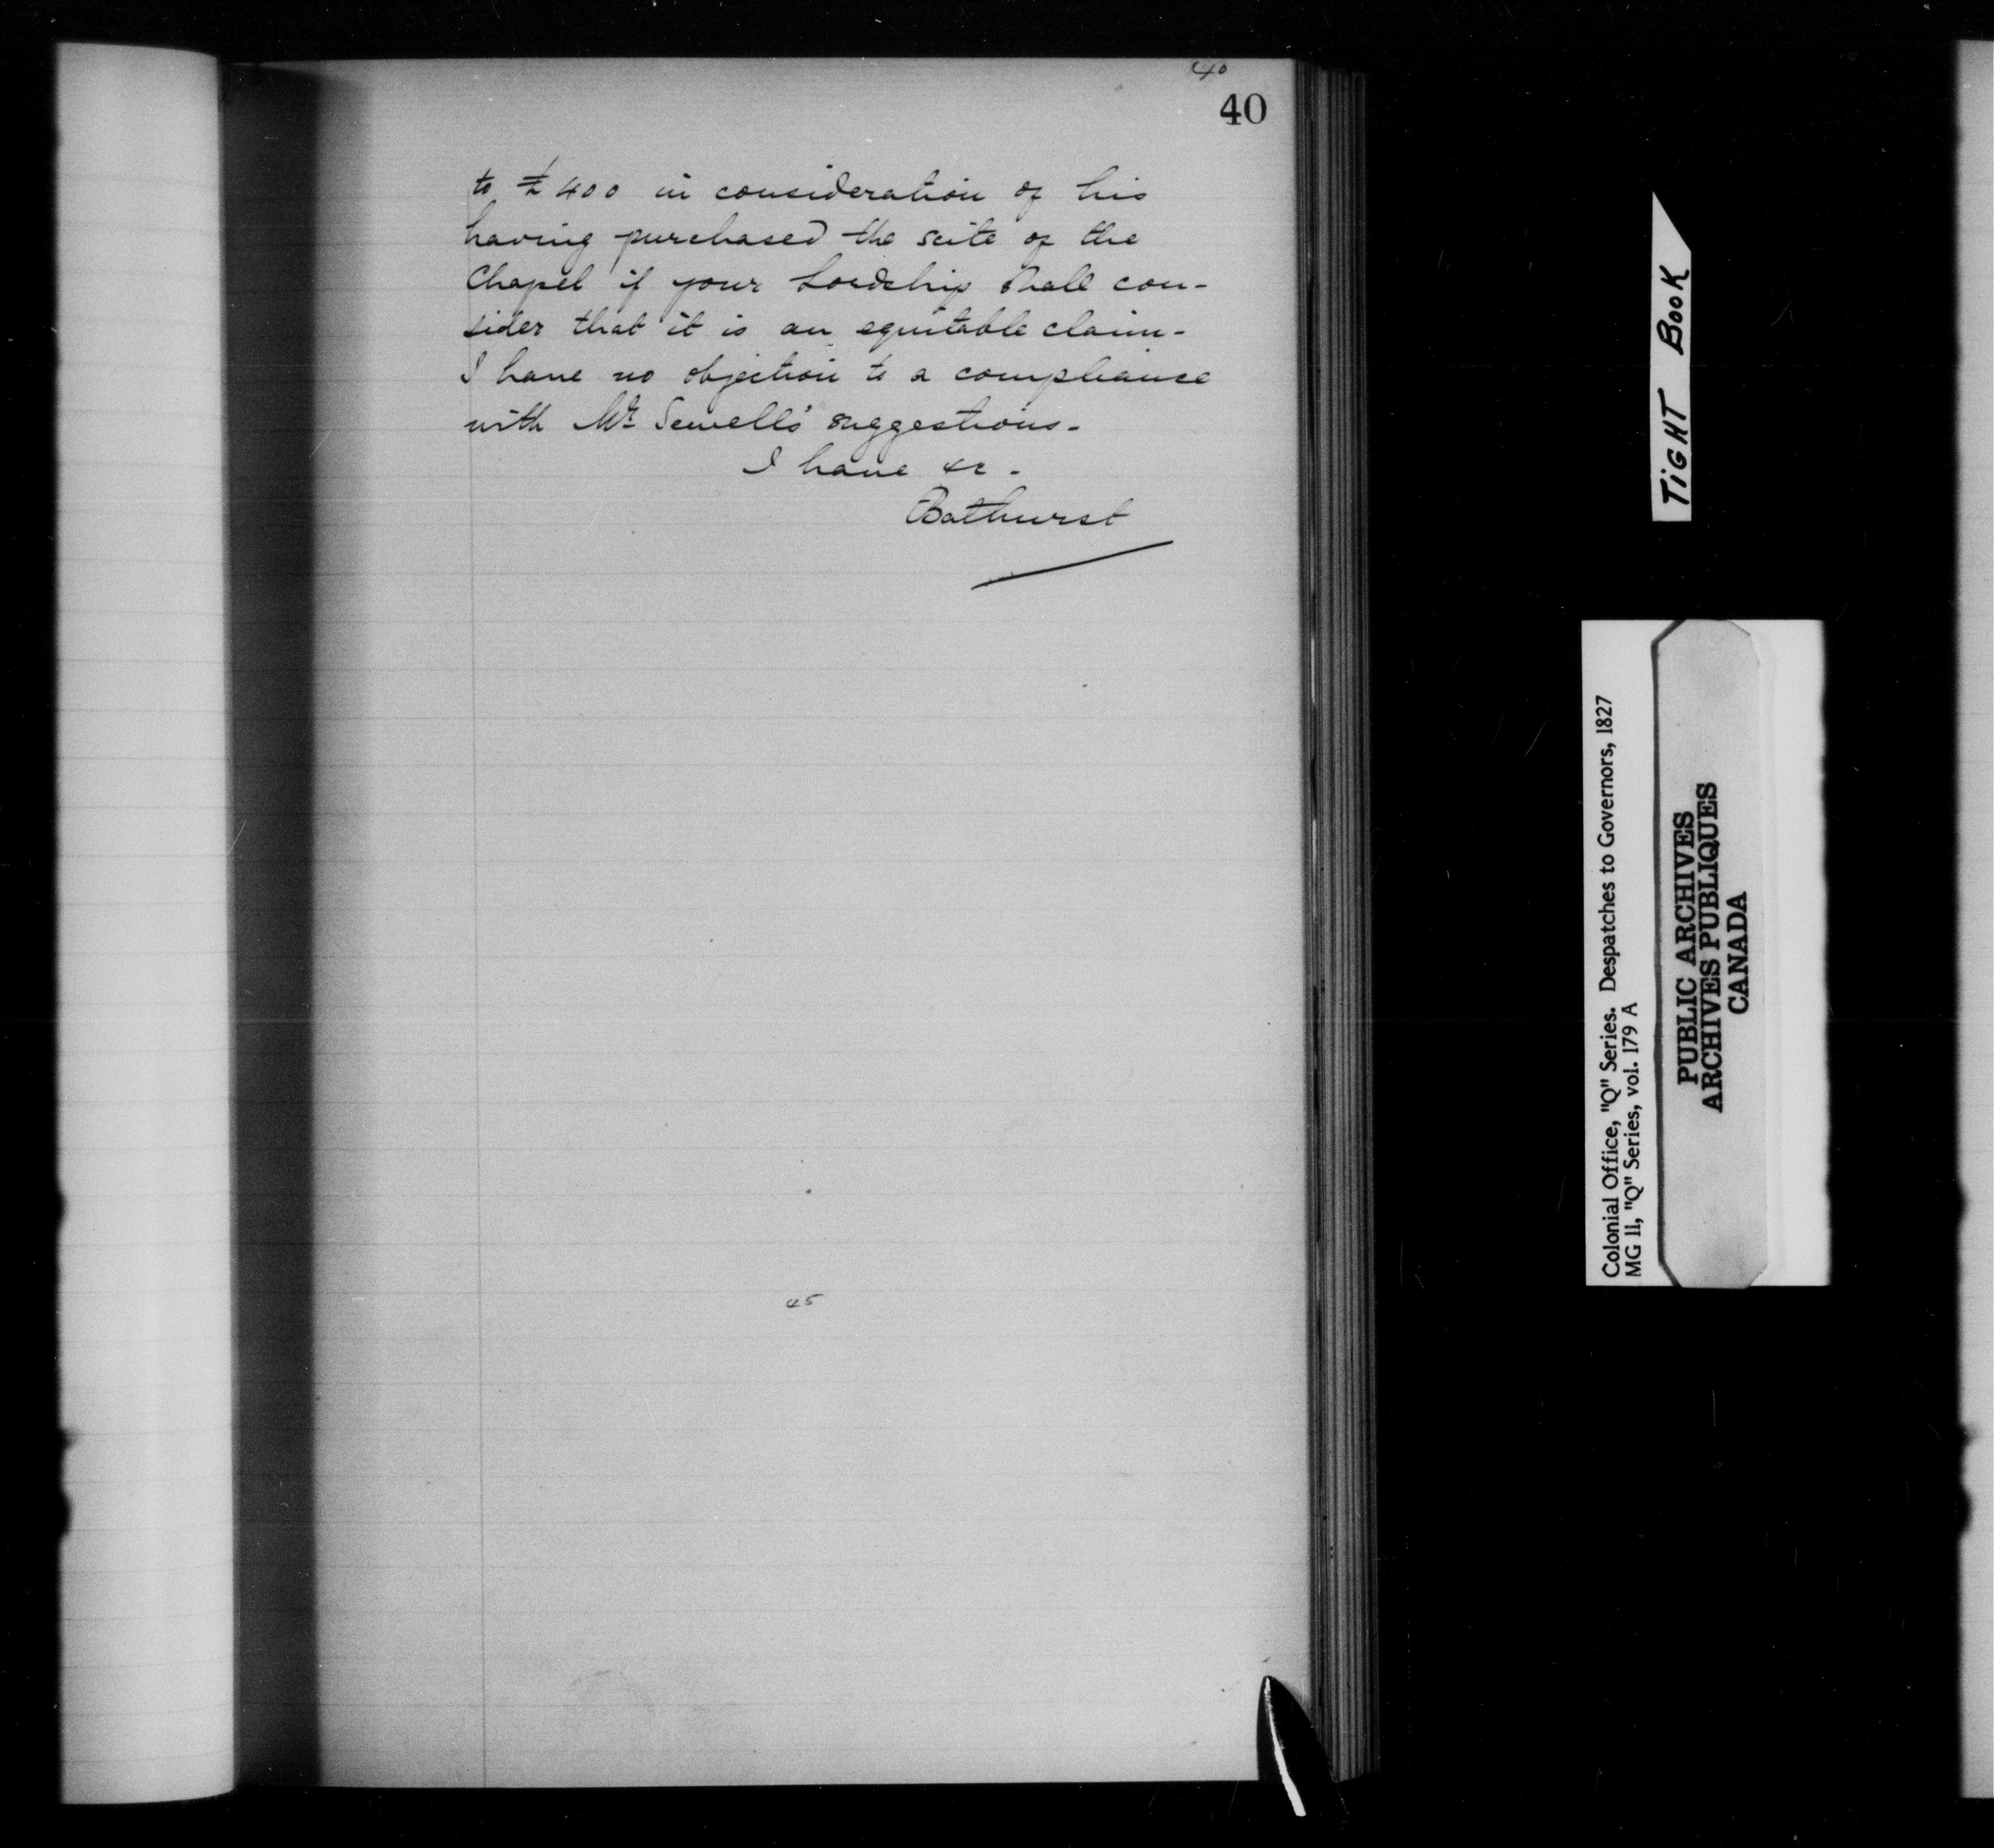 40
40
to £400 in consideration of his
having purchased the scite of the
Chapel if your Lordship shall con-
sider that it is an equitable claim-
I have no objection to a compliance
with Mr Sewell's suggestions-
I have &c-
Bathurst
45
TIGHT BOOK
Colonial Office, "Q" Series. Despatches to Governors, 1827
MG 11, "Q" Series, vol. 179 A
PUBLIC ARCHIVES
ARCHIVES PUBLIQUES
CANADA